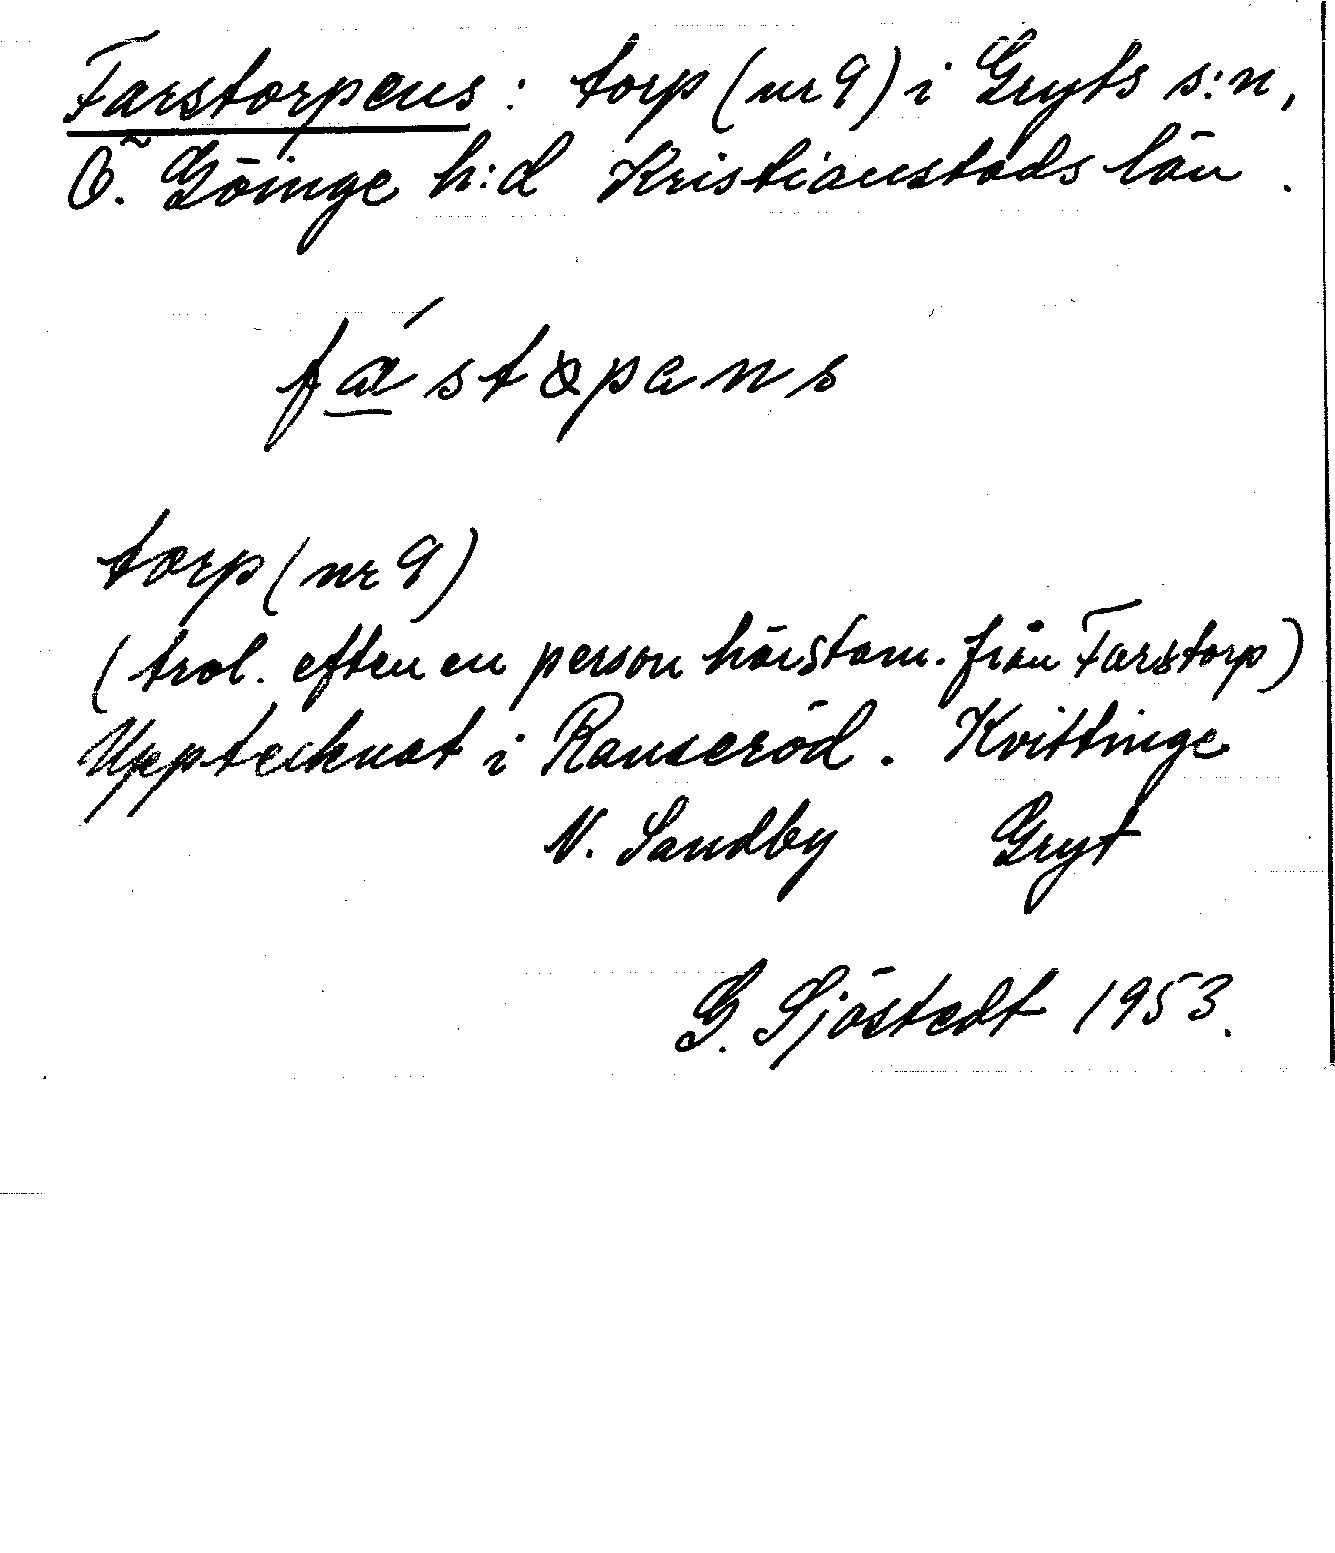 Farstorpens: torp (nr 9) i Gryts s:n,
Ö. Göinge h:d Kristianstads län.
torp (nr 9)
(trol. efter en person härstam. från Farstorp)
Upptecknat i Ranseröd. Kvittinge
N. Sandby Gryt
G. Sjöstedt 1953.